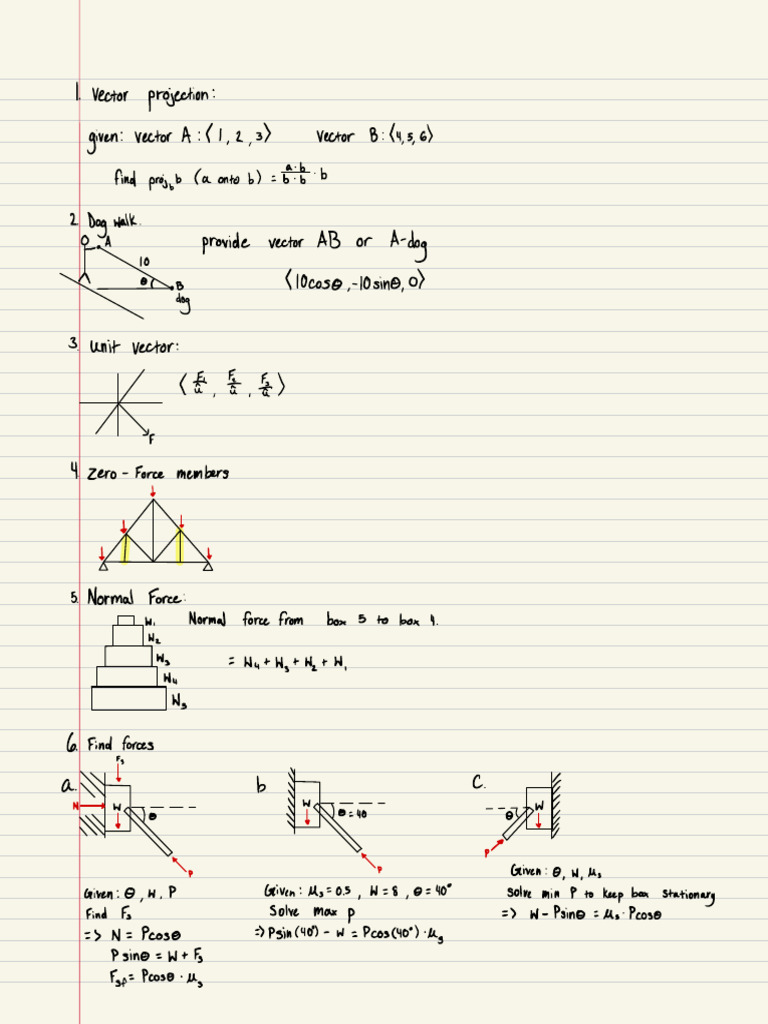 1. Vector projection:
given: vector A: ⟨1, 2, 3⟩ Vector B: ⟨4, 5, 6⟩
find proj_b b (a onto b) = a·b / b·b · b
2. Dog walk.
A
provide vector AB or A-dog
10
θ
B
dog
⟨10cosθ, -10sinθ, 0⟩
3. unit vector:
⟨F₁/û, F₂/û, F₃/û⟩
F
4. Zero-Force members
5. Normal Force:
W₁
Normal force from box 5 to box 4.
W₂
W₃
= W₄ + W₃ + W₂ + W₁
W₄
W₅
6. Find forces
a.
Fs
N
W
θ
P
b
W
θ = 40
P
C.
W
θ
P
Given: θ, W, P
Find Fs
=> N = Pcosθ
Psinθ = W + Fs
Fsf = Pcosθ · μs
Given: μs = 0.5, W = 8, θ = 40°
Solve max p
=> Psin(40°) - W = Pcos(40°) · μs
Given: θ, W, μs
Solve min P to keep box stationary
=> W - Psinθ = μs · Pcosθ